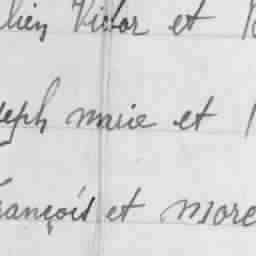 lien Victor et
seph marie et
rançois et More